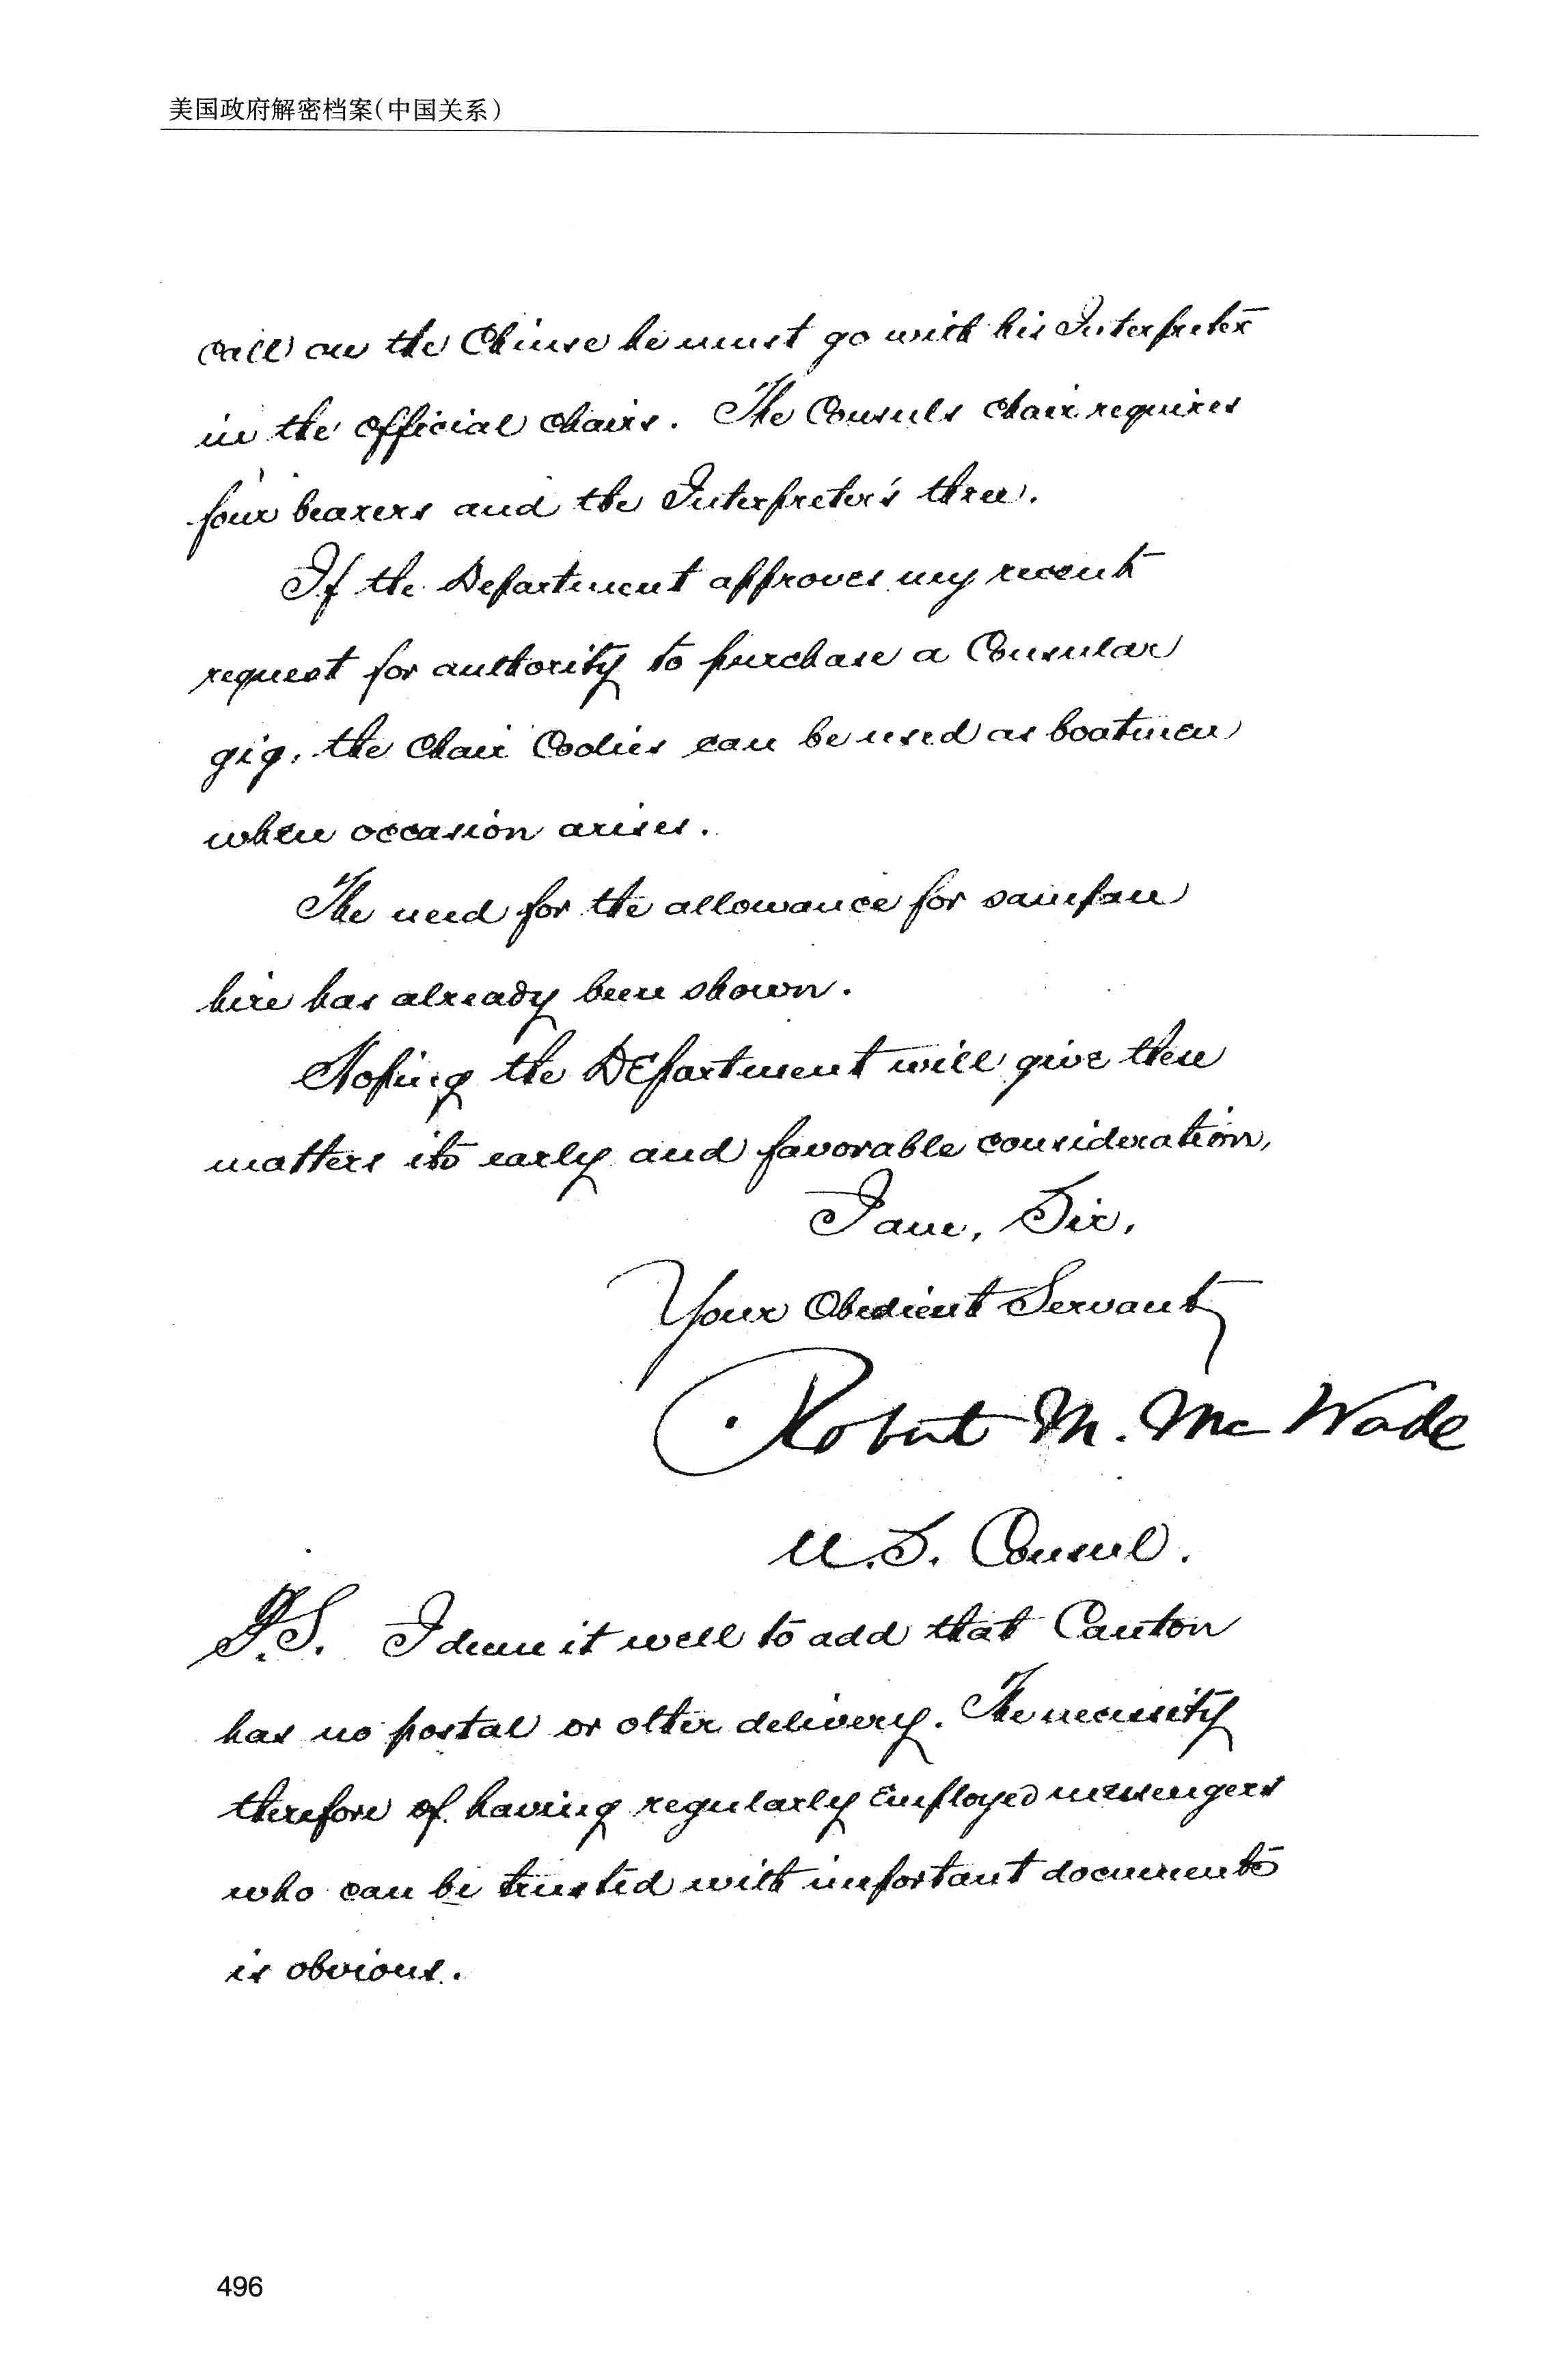 美国政府解密档案(中国关系)
call on the Chinese he must go with his Interpreter
in the official chairs. The Consuls chair requires
four bearers and the Interpreter's three.
If the Department approves my recent
request for authority to purchase a Consular
gig, the chair Coolies can be used as boatmen
when occasion arises.
The need for the allowance for sampan
hire has already been shown.
Hoping the Department will give these
matters its early and favorable consideration,
I am, Sir,
Your Obedient Servant,
Robert M. McWade
U.S. Consul.
P.S. I deem it well to add that Canton
has no postal or other delivery. The necessity
therefore of having regularly employed messengers
who can be trusted with important documents
is obvious.
496